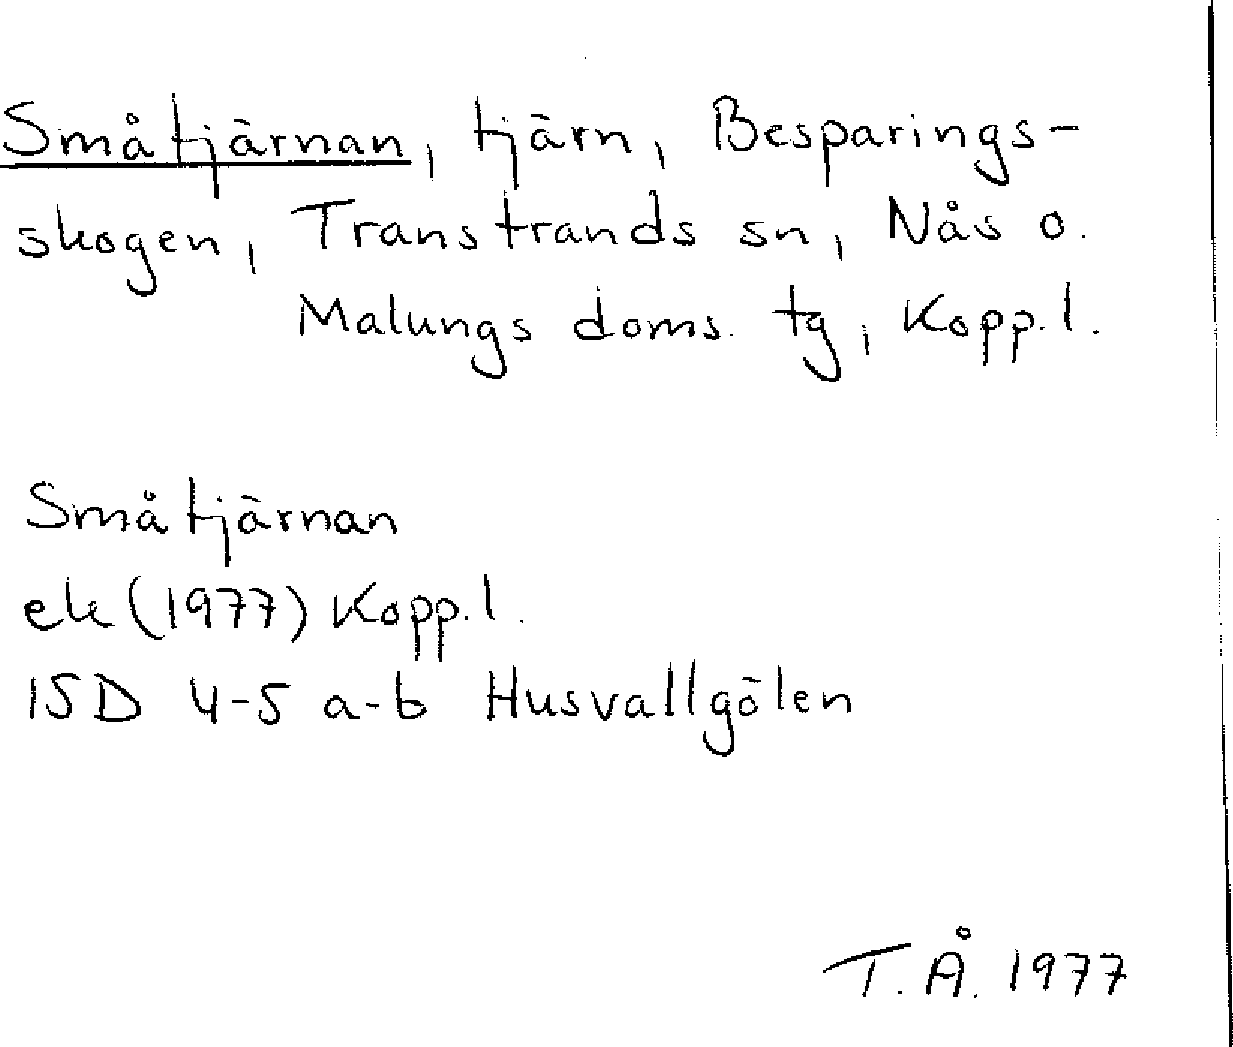 Småtjärnan, tjärn, Besparings-
skogen, Transtrands sn, Nås o.
Malungs doms. tg, Kopp. l.
Småtjärnan
ek (1977) Kopp. l.
15D 4-5 a-b Husvallgölen
T. Å. 1977